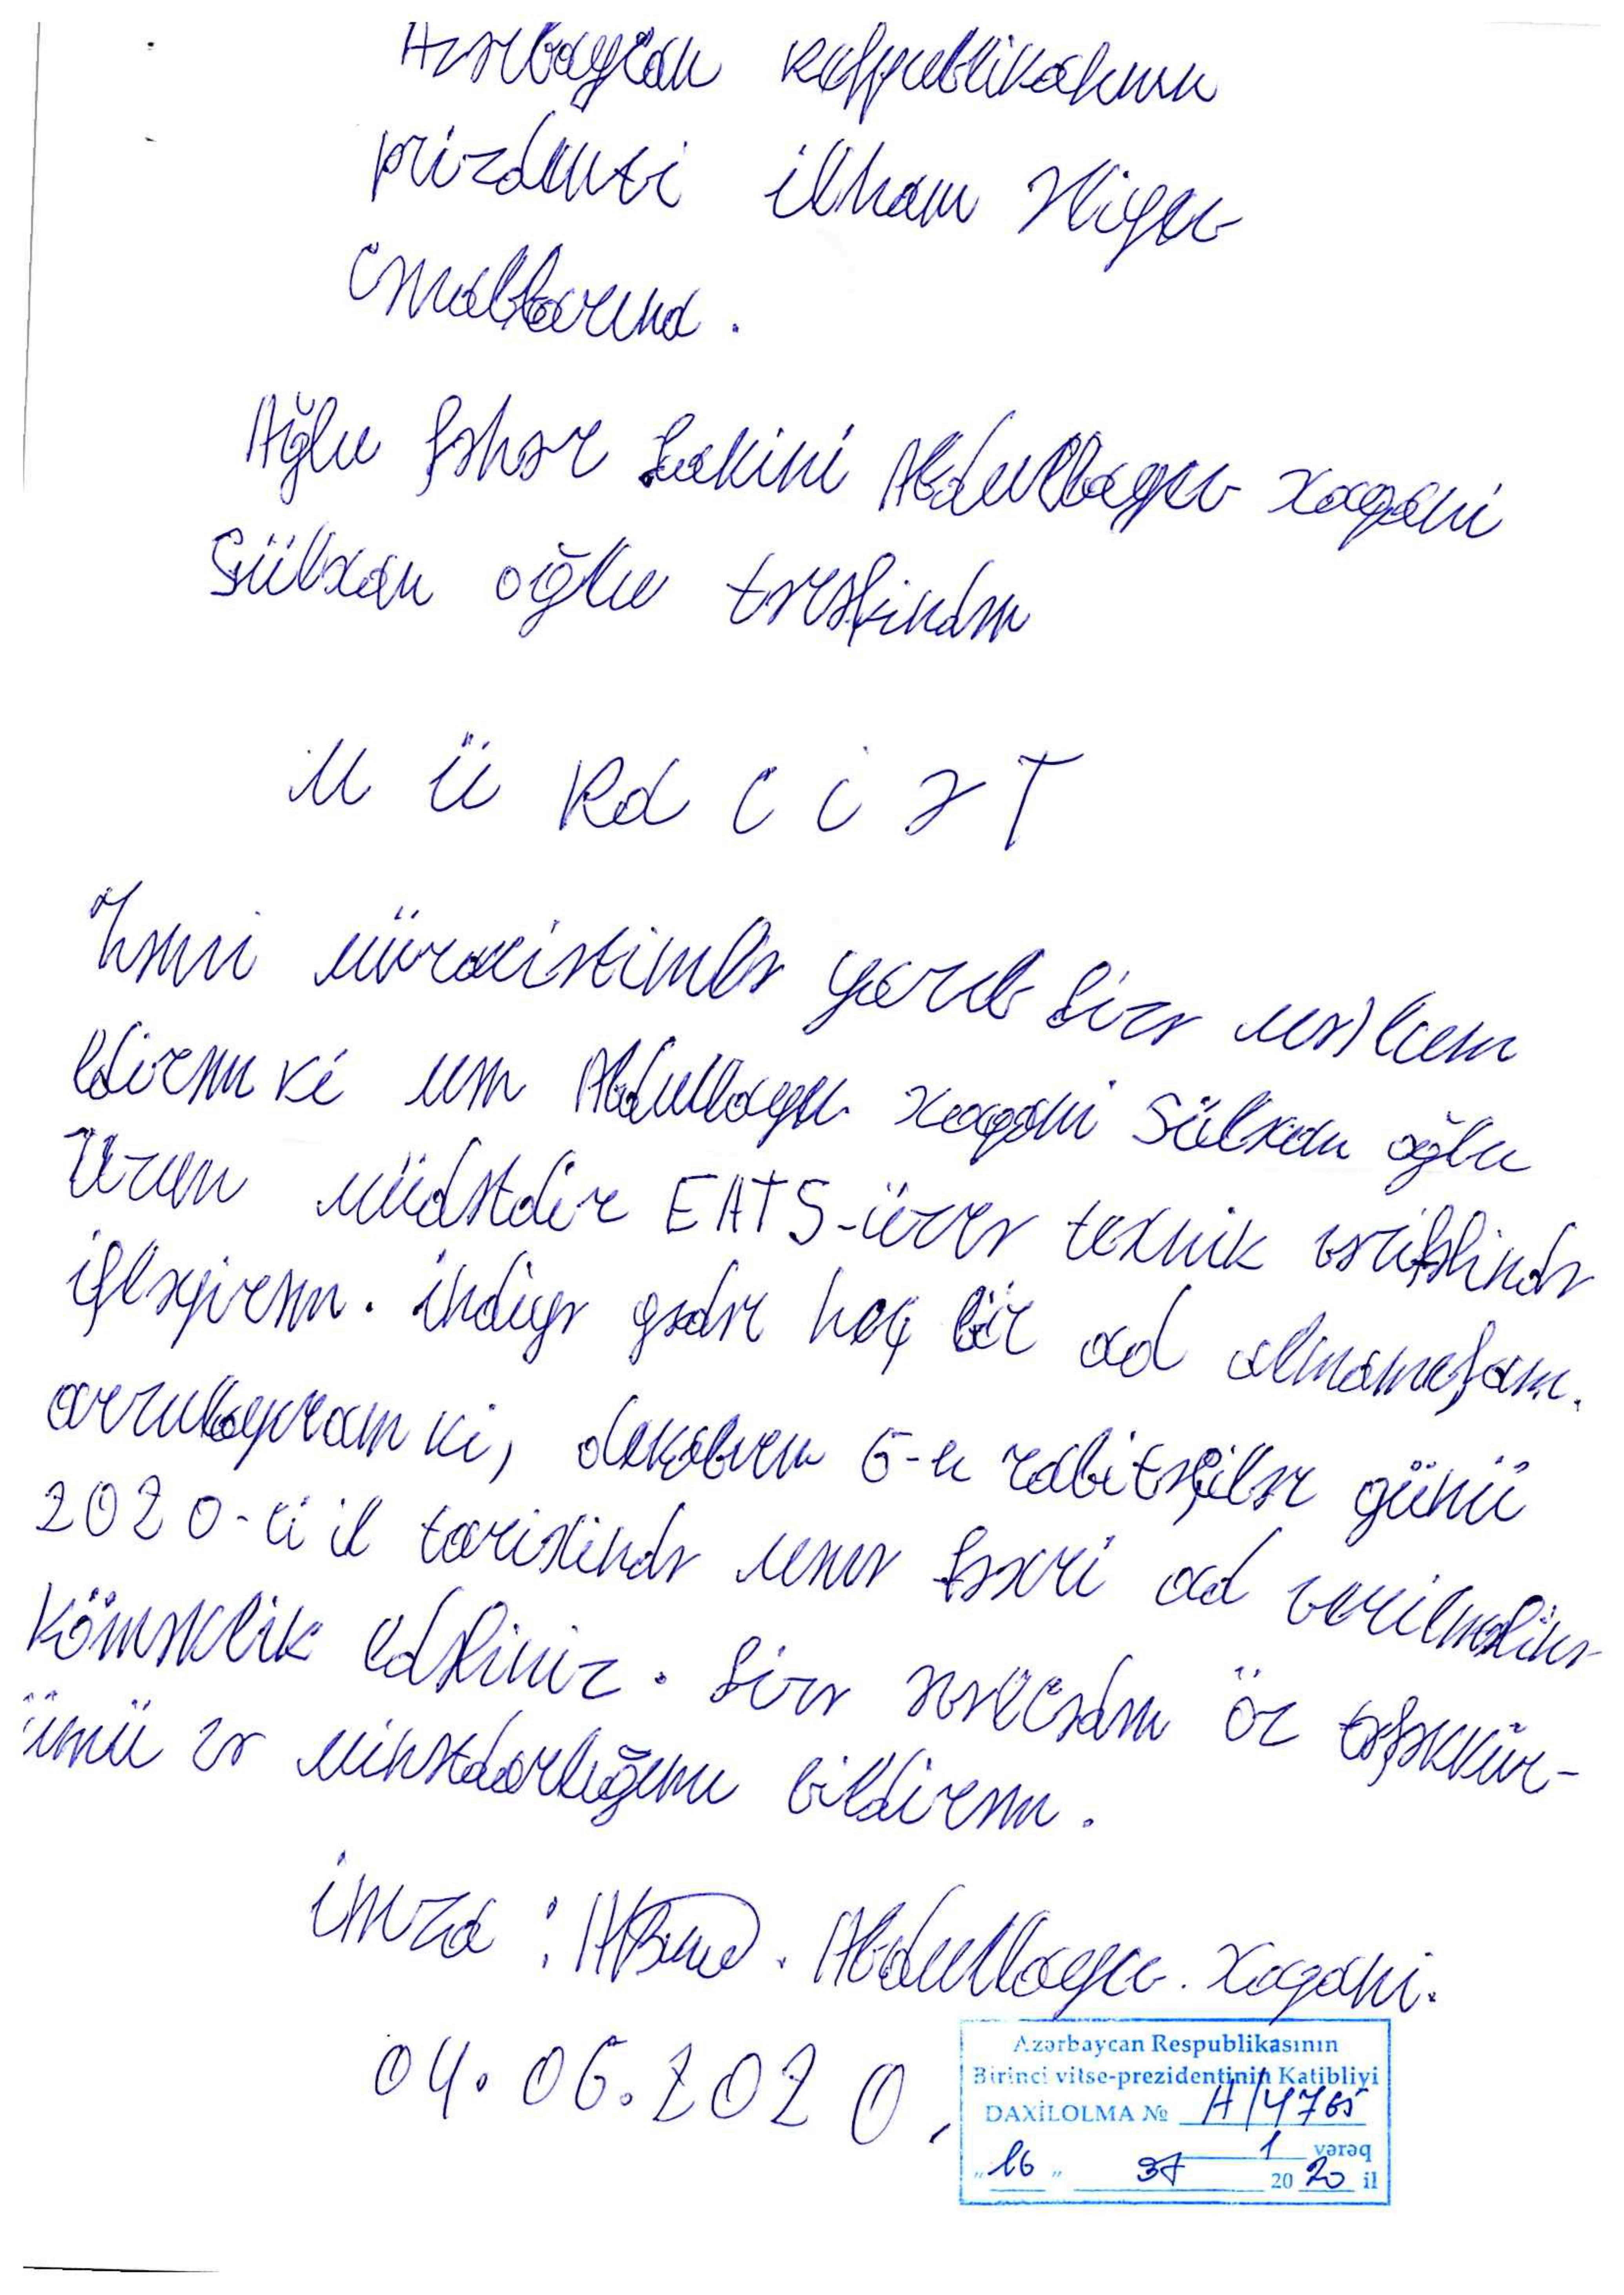 Azərbaycan Respublikasının
prizdenti ilham Əliyev
Cənablarına.
Ağsu şəhər Sakini Abdullayev Xaqani
Sülxan oğlu tərəfindən
M Ü R A C İ Ə T
Həmin müraciətimlə yazıb Sizə məlum
edirəm ki mən Abdullayev Xaqani Sülxan oğlu
Uzun müddətdir EATS-üzrə texnik vəzifəsində
işləyirəm. indiyə qədər heç bir ad almamışam.
arzulayıram ki, dekabrın 6-ı rabitəçilər günü
2020-ci il tarixində mənə fəxri ad verilməsinə
Köməklik edəsiniz. Sizə əvvəlcədən öz təşəkkür-
ümü və minətdarlığımı bildirəm.
imza: Abdullayev. Xaqani.
04.06.2020.
Azərbaycan Respublikasının
Birinci vitse-prezidentinin Katibliyi
DAXİLOLMA № A/4765
1 vərəq
"16" 2020 il